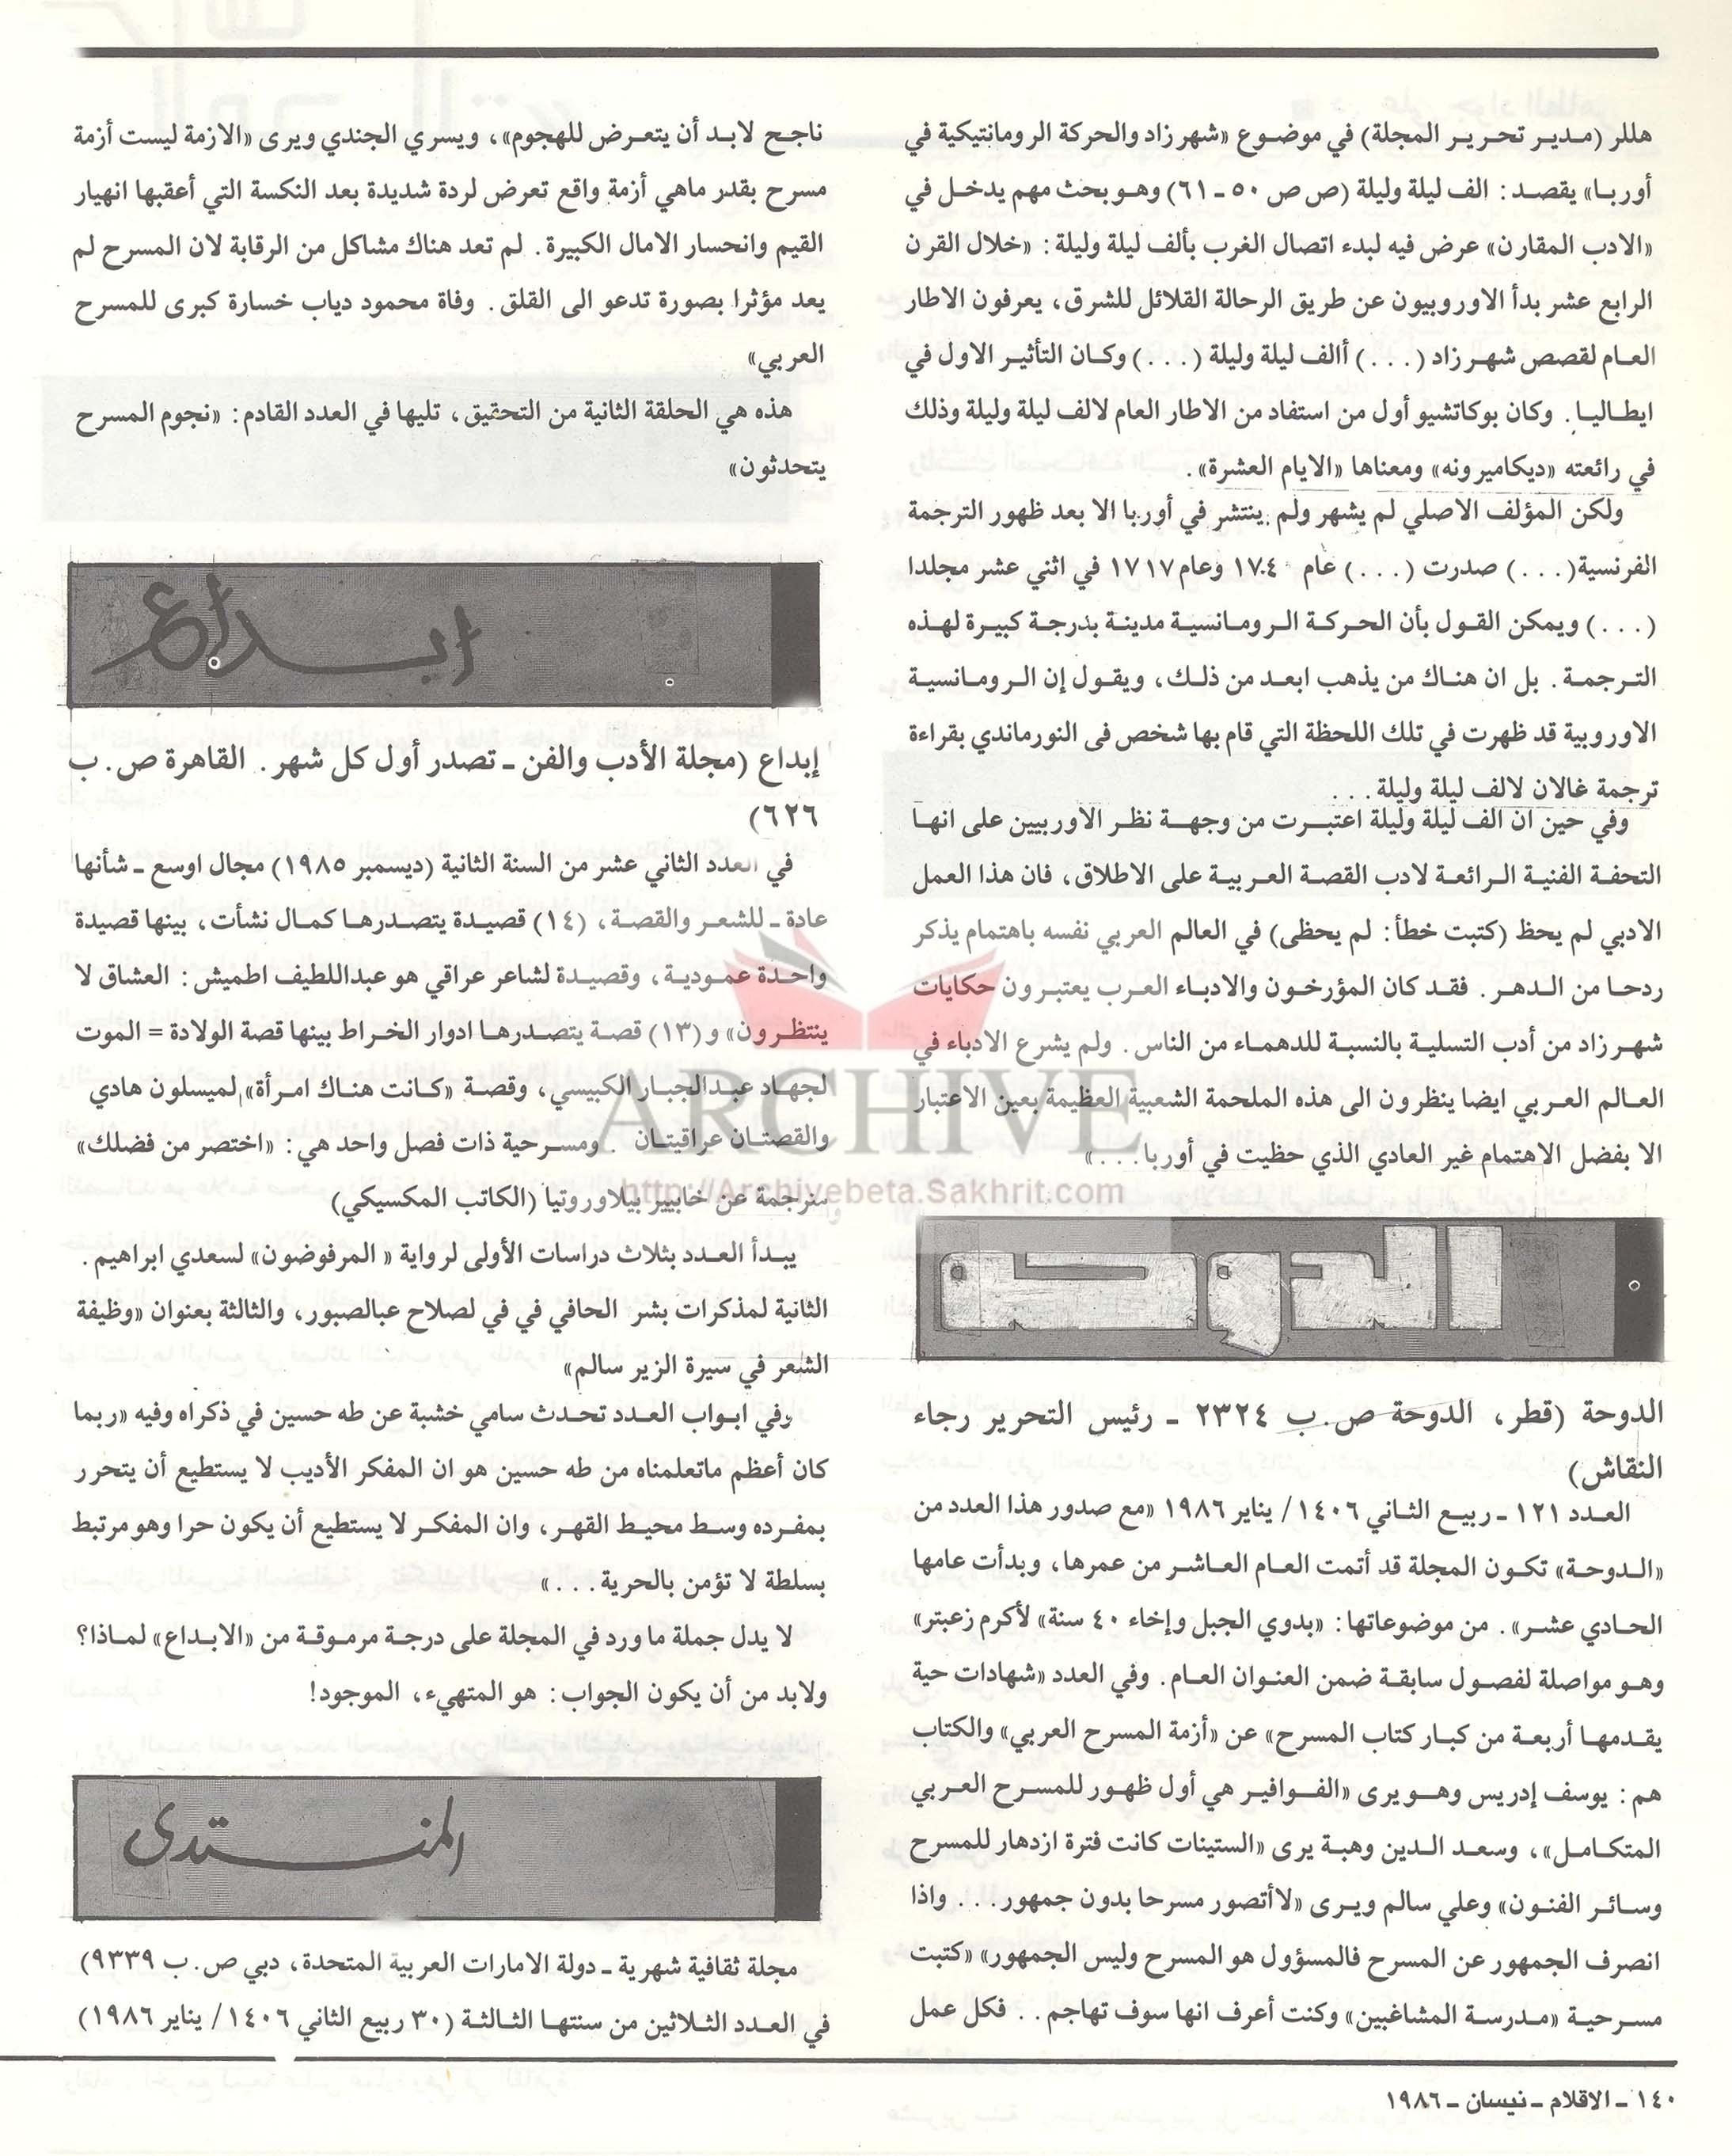 هللر (مـديـر تحـريـر المجلة) في موضـوع «شهـرزاد والحركة الرومانتيكية في
أوربـا» يقصـد : الف ليلة وليلة (ص ص ٥٠ ـ ٦١) وهـو بحث مهم يدخـل في
«الادب المقارن» عرض فيه لبدء اتصال الغرب بألف ليلة وليلة : «خلال القرن
الرابع عشر بدأ الاوروبيون عن طريق الرحالة القلائل للشرق، يعرفون الاطار
العـام لقصص شهـرزاد (. . .) أالف ليلة وليلة (. . .) وكـان التأثيـر الاول في
ايطـاليـا . وكان بوكاتشيو أول من استفاد من الاطار العام لالف ليلة وليلة وذلك
في رائعته «ديكاميرونه» ومعناها «الايام العشرة» .
ولكن المؤلف الاصلي لم يشهر ولم ينتشر في أوربا الا بعد ظهور الترجمة
الفرنسية (. . .) صدرت (. . .) عام ١٧٠٤ وعام ١٧١٧ في اثني عشر مجلدا
(. . .) ويمكن القـول بأن الحـركـة الـرومـانسيـة مدينـة بدرجـة كبيـرة لهـذه
التـرجمـة . بل ان هنـاك من يذهب ابعـد من ذلـك، ويقـول إن الـرومـانسيـة
الاوروبية قد ظهرت في تلك اللحظة التي قام بها شخص فى النورماندي بقراءة
ترجمة غالان لالف ليلة وليلة . . .
وفي حين ان الف ليلة وليلة اعتبـرت من وجهـة نظـر الاوربيين على انهـا
التحفـة الفنيـة الـرائعـة لادب القصة العـربيـة على الاطلاق، فان هذا العمل
الادبي لم يحظ (كتبت خطأ : لم يحظى) في العالم العربي نفسه باهتمام يذكر
ردحـا من الـدهـر . فقـد كان المؤرخـون والادبـاء العـرب يعتبـرون حكايات
شهـرزاد من أدب التسليـة بالنسبـة للدهمـاء من الناس . ولم يشرع الادباء في
العـالم العـربي ايضا ينظرون الى هذه الملحمة الشعبية العظيمة بعين الاعتبار
الا بفضل الاهتمام غير العادي الذي حظيت في أوربا . . . »
الدوحة
الدوحة (قطر، الدوحة ص . ب ٢٣٢٤ ـ رئيس التحرير رجاء
النقاش)
العـدد ١٢١ ـ ربيـع الثـاني ١٤٠٦ / يناير ١٩٨٦ «مع صدور هذا العدد من
«الـدوحـة» تكـون المجلة قد أتمت العـام العـاشـر من عمرها، وبدأت عامها
الحـادي عشـر» . من موضوعاتها : «بدوي الجبل وإخاء ٤٠ سنة» لأكرم زعيتر»
وهـو مواصلة لفصـول سابقـة ضمن العنـوان العـام . وفي العدد «شهادات حية
يقـدمهـا أربعـة من كبـار كتاب المسرح» عن «أزمة المسرح العربي» والكتاب
هم : يوسف إدريس وهـو يرى «الفـوافيـر هي أول ظهـور للمسـرح العـربي
المتكـامـل» ، وسعـد الـدين وهبـة يرى «الستينات كانت فترة ازدهار للمسرح
وسـائـر الفنـون» وعلي سالم ويـرى «لا أتصور مسرحا بدون جمهور . . . واذا
انصرف الجمهور عن المسرح فالمسؤول هو المسرح وليس الجمهور» «كتبت
مسـرحيـة «مـدرسـة المشاغبين» وكنت أعرف انها سوف تهاجم . . فكل عمل
ناجـح لابـد أن يتعـرض للهجوم» ، ويسري الجندي ويرى «الازمة ليست أزمة
مسرح بقدر ماهي أزمة واقع تعرض لردة شديدة بعد النكسة التي أعقبها انهيار
القيم وانحسار الامال الكبيرة . لم تعد هناك مشاكل من الرقابة لان المسرح لم
يعد مؤثرا بصورة تدعو الى القلق . وفاة محمود دياب خسارة كبرى للمسرح
العربي»
هذه هي الحلقة الثانية من التحقيق، تليها في العدد القادم : «نجوم المسرح
يتحدثون»
ابداع
إبداع (مجلة الأدب والفن ـ تصدر أول كل شهر . القاهرة ص . ب
٦٢٦)
في العدد الثاني عشر من السنة الثانية (ديسمبر ١٩٨٥) مجال اوسع ـ شأنها
عادة ـ للشعـر والقصة، (١٤) قصيـدة يتصـدرهـا كمـال نشأت، بينها قصيدة
واحـدة عمـوديـة، وقصيـدة لشاعر عراقي هو عبداللطيف اطميش : العشاق لا
ينتظـرون» و (١٣) قصـة يتصدرهـا ادوار الخـراط بينهـا قصة الولادة = الموت
لجهـاد عبـدالجبـار الكبيسي، وقصـة «كـانت هنـاك امـرأة» لميسلون هادي
والقصتـان عراقيتـان . ومسـرحية ذات فصل واحد هي : «اختصر من فضلك»
مترجمة عن خابيير بيلاوروتيا (الكاتب المكسيكي)
يبـدأ العـدد بثلاث دراسات الأولى لرواية « المرفوضون» لسعدي ابراهيم .
الثانية لمذكرات بشر الحافي في في لصلاح عبالصبور، والثالثة بعنوان «وظيفة
الشعر في سيرة الزير سالم»
وفي ابـواب العـدد تحـدث سامي خشبة عن طه حسين في ذكراه وفيه «ربما
كان أعظم ماتعلمناه من طه حسين هو ان المفكر الأديب لا يستطيع أن يتحرر
بمفـرده وسـط محيـط القهـر، وان المفكـر لا يستطيع أن يكون حرا وهو مرتبط
بسلطة لا تؤمن بالحرية . . . »
لا يدل جملة ما ورد في المجلة على درجـة مرمـوقـة من «الابـداع» لمـاذا؟
ولابد من أن يكون الجواب : هو المتهيء، الموجود!
المنتدى
مجلة ثقافية شهرية ـ دولة الامارات العربية المتحدة، دبي ص . ب ٩٣٣٩)
في العـدد الثـلاثين من سنتهـا الثـالثـة (٣٠ ربيع الثاني ١٤٠٦ / يناير ١٩٨٦)
١٤٠ ـ الاقلام ـ نيسان ـ ١٩٨٦
ARCHIVE
http://Archivebeta.Sakhrit.com